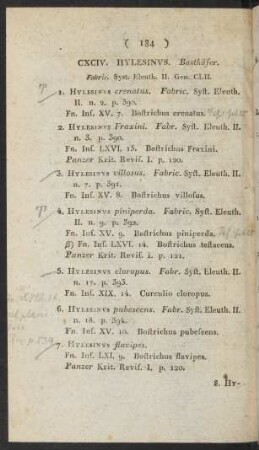 ( 184 )
CXCIV. HYLESINVS. Bastkäfer.
Fabric. Syst. Eleuth. II. Gen. CLII.
1. Hylesinvs crenatus. Fabric. Syst. Eleuth.
II. n. 2. p. 390.
Fn. Ins. XV. 7. Bostrichus crenatus.
2. Hylesinvs Fraxini. Fabr. Syst. Eleuth. II.
n. 3. p. 390.
Fn. Ins. LXVI. 15. Bostrichus Fraxini.
Panzer Krit. Revis. I. p. 120.
3. Hylesinvs villosus. Fabric. Syst. Eleuth. II.
n. 7. p. 391.
Fn. Ins. XV. 8. Bostrichus villosus.
4. Hylesinvs piniperda. Fabric. Syst. Eleuth.
II. n. 9. p. 392.
Fn. Ins. XV. 9. Bostrichus piniperda.
β) Fn. Ins. LXVI. 14. Bostrichus testaceus.
Panzer Krit. Revis. I. p. 121.
5. Hylesinvs cloropus. Fabr. Syst. Eleuth. II.
n. 12. p. 393.
Fn. Ins. XIX. 14. Curculio cloropus.
6. Hylesinvs pubescens. Fabr. Syst. Eleuth. II.
n. 18. p. 394.
Fn. Ins. XV. 10. Bostrichus pubescens.
7. Hylesinvs flavipes.
Fn. Ins. LXI. 9. Bostrichus flavipes.
Panzer Krit. Revis. I. p. 120.
8. Hy-